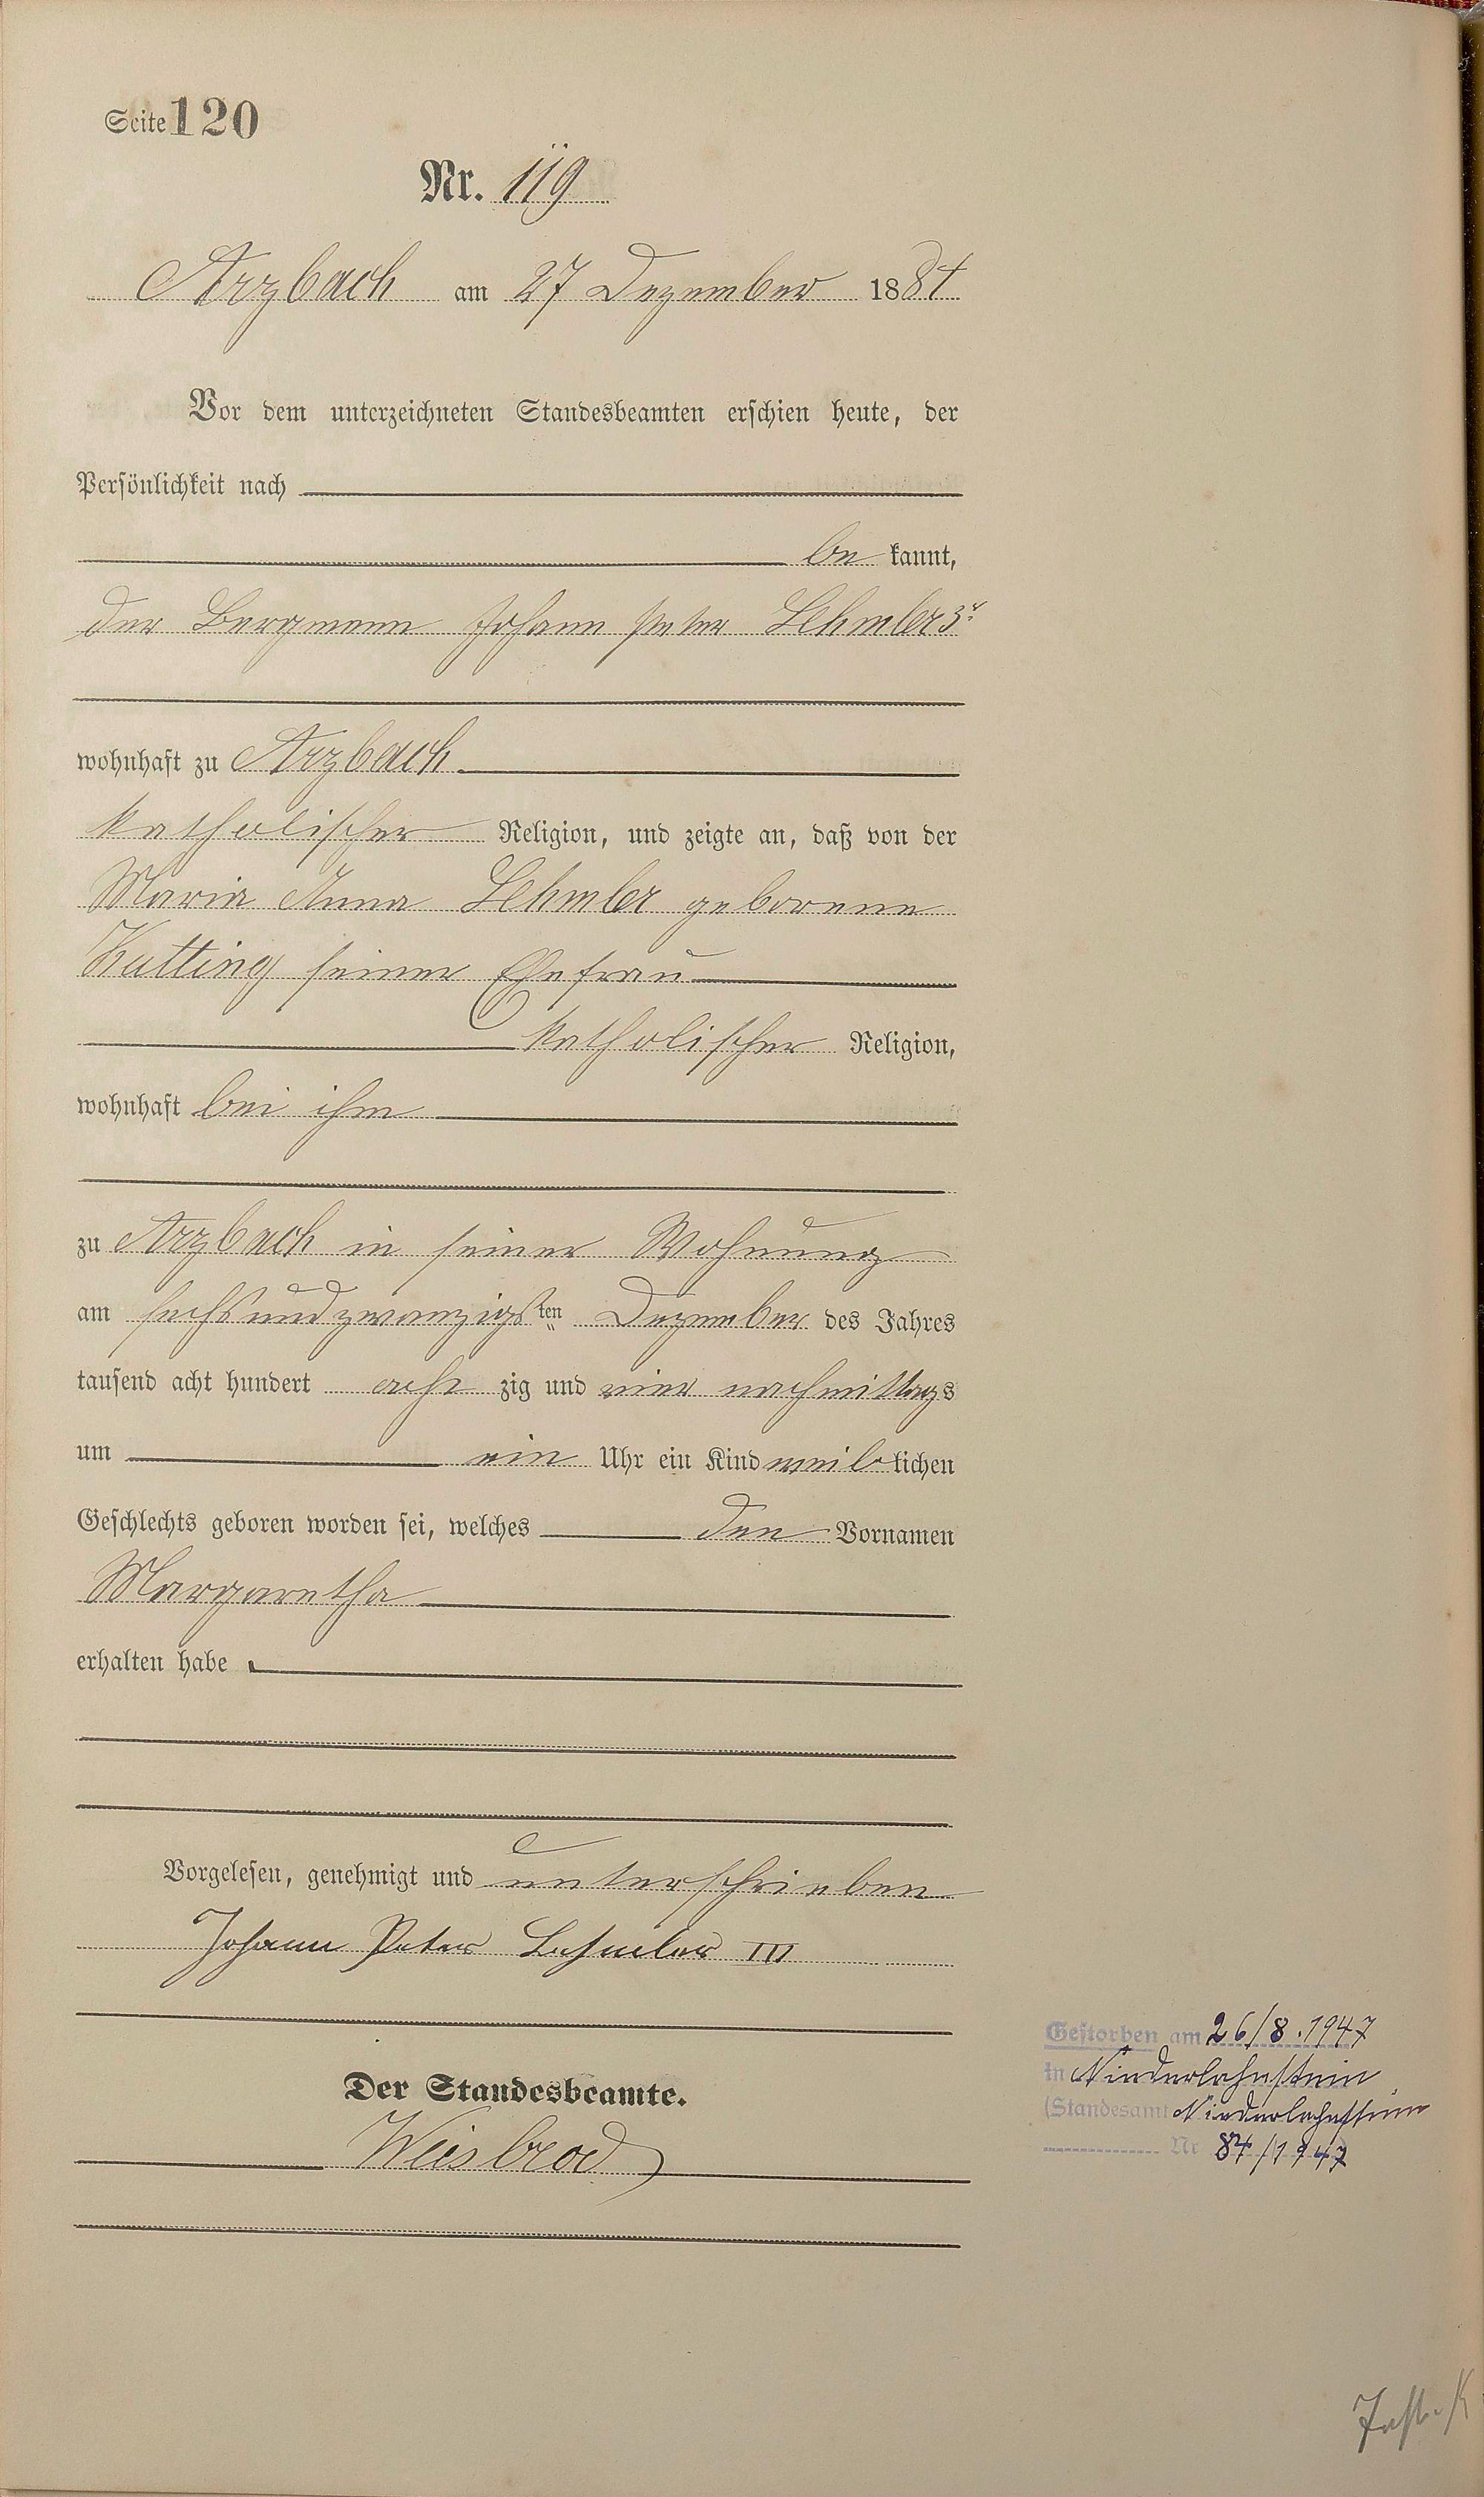 Seite 120
Nr. 119
Arzbach am 27 Dezember 1884
Vor dem unterzeichneten Standesbeamten erschien heute, der
Persönlichkeit nach
be kannt,
der Bergmann Johann Peter Lehmler 3r
wohnhaft zu Arzbach
katholischer Religion, und zeigte an, daß von der
Maria Anna Lehmler geborene
Kutting seiner Ehefrau
katholischer Religion,
wohnhaft bei ihm
zu Arzbach in seiner Wohnung
am sechsundzwanzigsten Dezember des Jahres
tausend acht hundert acht zig und vier nachmittags
um ein Uhr ein Kind weib lichen
Geschlechts geboren worden sei, welches den Vornamen
Margaretha
erhalten habe
Vorgelesen, genehmigt und unterschrieben
Johann Peter Lehmler III
Der Standesbeamte.
Weisbrod
Gestorben am 26/8.1947
in Niederlahnstein
(Standesamt Niederlahnstein
Nr 84/1947